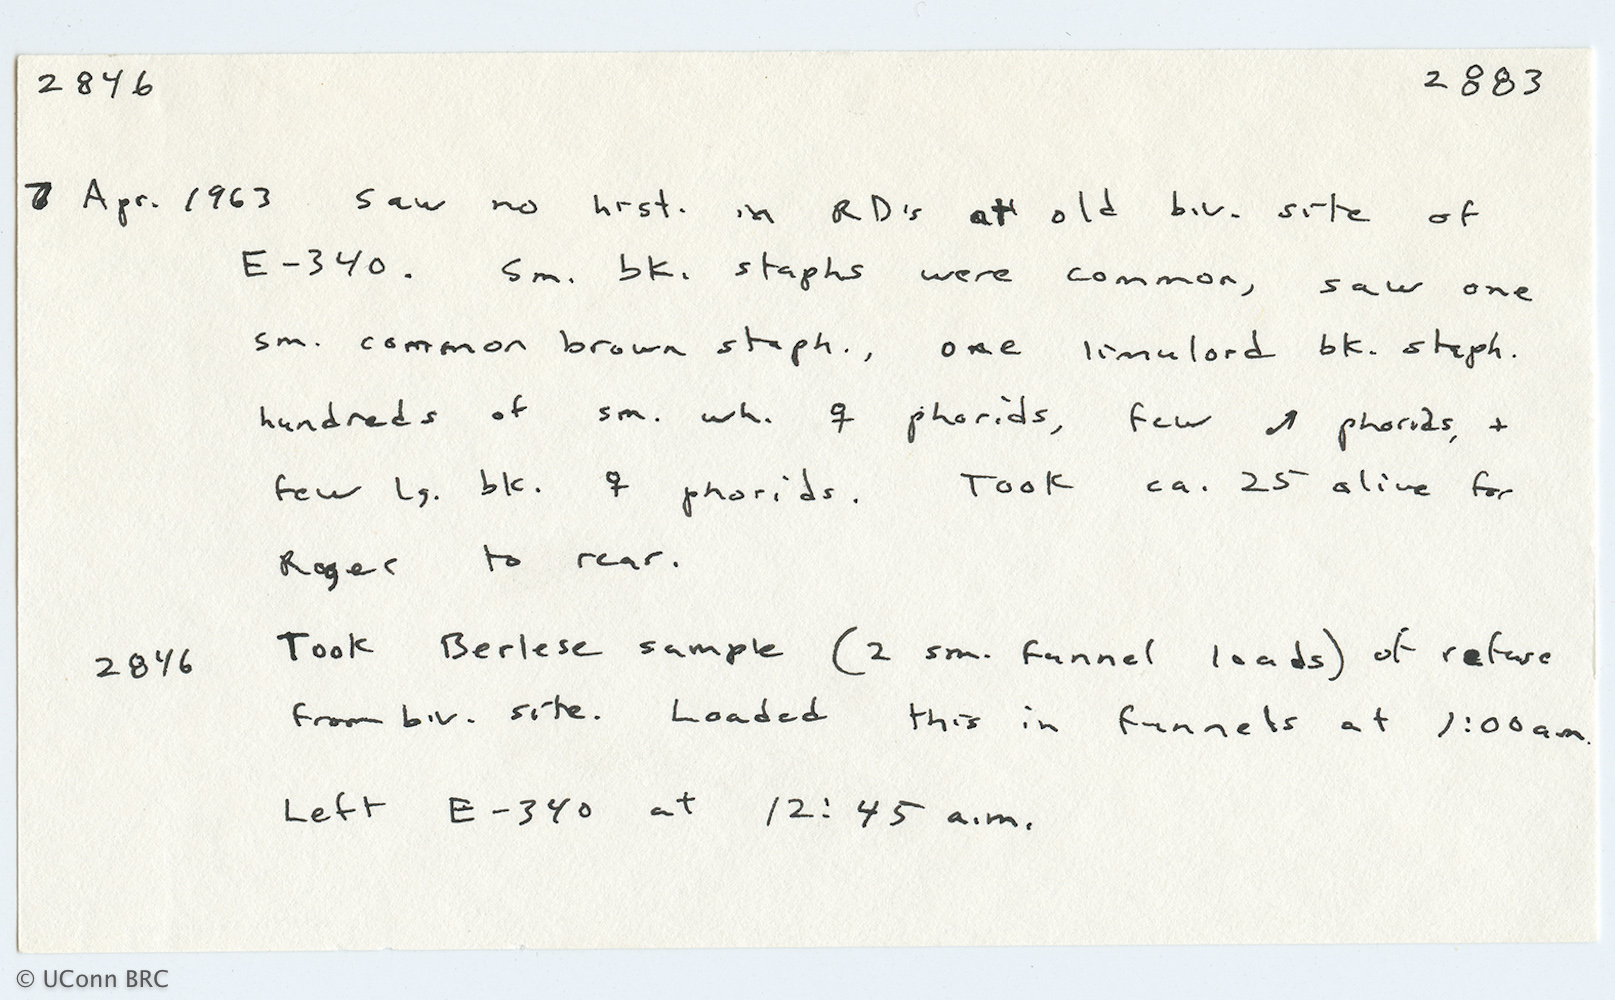 2846 2883
7 Apr. 1963 Saw no hist. in RD's at old biv. site of
E-340. Sm. bk. staphs were common, saw one
sm. common brown staph., one limuloid bk. staph.
hundreds of sm. wh. ♀ phorids, few ♂ phorids, +
few lg. bk. ♀ phorids. Took ca. 25 alive for
Roger to rear.
2846 Took Berlese sample (2 sm. funnel loads) of refuse
from biv. site. Loaded this in funnels at 1:00 am.
Left E-340 at 12:45 a.m.
© UConn BRC